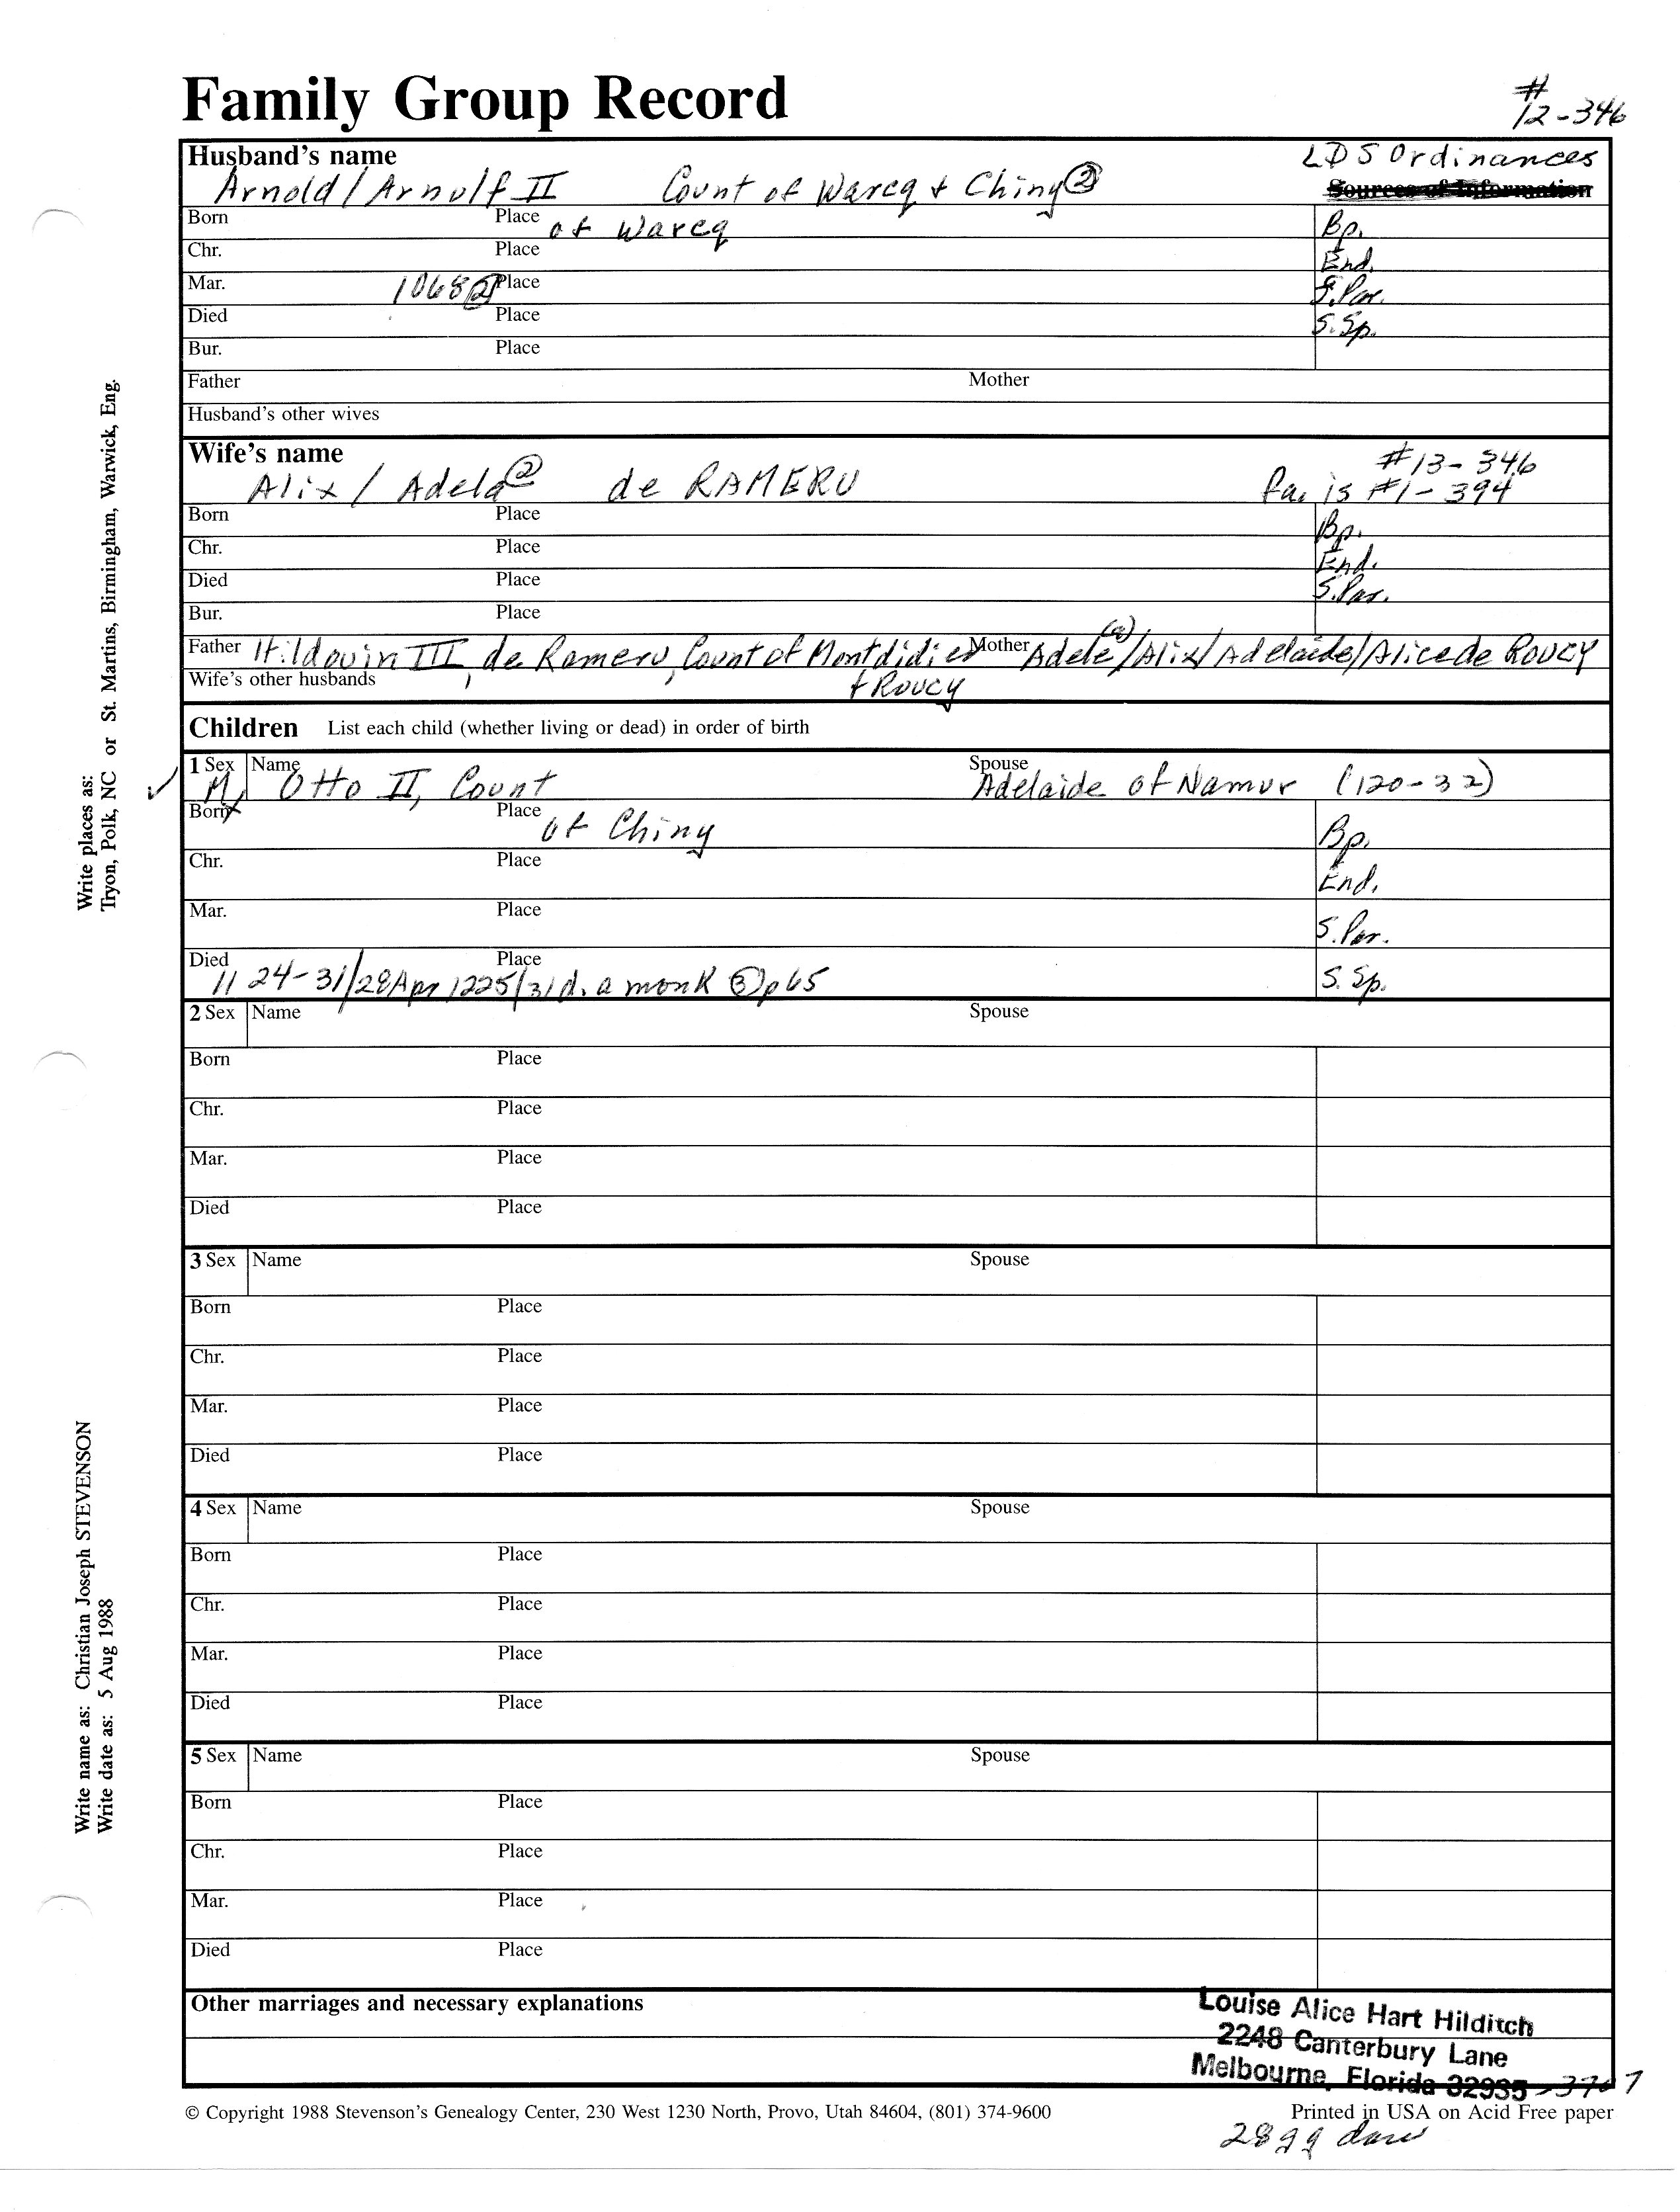 Family Group Record
#
12-346
Husband's name
LDS Ordinances
Arnold/Arnulf II Count of Warcq + Ching ②
Sources of Information
Born Place of Warcq Bp.
Chr. Place End.
Mar. 1068 ② Place S. Par.
Died Place S. Sp.
Bur. Place
Father Mother
Husband's other wives
Wife's name #13-346
Alix / Adela ② de RAMERU fa. is #1-394
Born Place Bp.
Chr. Place End.
Died Place S. Par.
Bur. Place
Father Hildouin III, de Rameru, Count of Montdidier Mother Adele/Alix/Adelaide/Alice de Roucy
Wife's other husbands + Roucy
Children List each child (whether living or dead) in order of birth
1 Sex Name Spouse
M Otto II, Count Adelaide of Namur (120-32)
Born Place of Chiny Bp.
Chr. Place End.
Mar. Place S. Par.
Died Place
11 24-31/28 Apr 1225/31 d. a monk ③ p 65 S. Sp.
2 Sex Name Spouse
Born Place
Chr. Place
Mar. Place
Died Place
3 Sex Name Spouse
Born Place
Chr. Place
Mar. Place
Died Place
4 Sex Name Spouse
Born Place
Chr. Place
Mar. Place
Died Place
5 Sex Name Spouse
Born Place
Chr. Place
Mar. Place
Died Place
Other marriages and necessary explanations
Louise Alice Hart Hilditch
2248 Canterbury Lane
Melbourne, Florida 32935-3707
© Copyright 1988 Stevenson's Genealogy Center, 230 West 1230 North, Provo, Utah 84604, (801) 374-9600 Printed in USA on Acid Free paper
28 gg
Write places as:
Tryon, Polk, NC or St. Martins, Birmingham, Warwick, Eng.
Write name as: Christian Joseph STEVENSON
Write date as: 5 Aug 1988